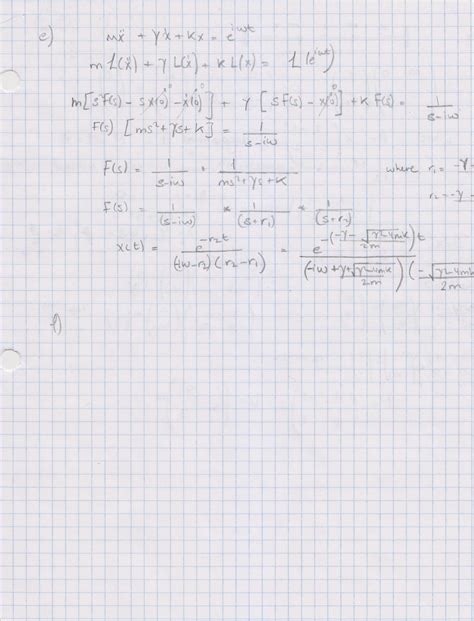 e) mẍ + γẋ + kx = e^{iωt}
m L(ẍ) + γ L(ẋ) + k L(x) = L(e^{iωt})
m[s²F(s) - sx(0)^0 - ẋ(0)^0] + γ[sF(s) - x(0)^0] + kF(s) = 1/(s-iω)
F(s) [ms² + γs + k] = 1/(s-iω)
F(s) = 1/(s-iω) * 1/(ms²+γs+k) where r₁ = -γ
F(s) = 1/(s-iω) * 1/(s-r₁) * 1/(s-r₂) r₂ = -γ -
x(t) = e^{-r₂t}/((-iω-r₂)(r₂-r₁)) = e^{-(-γ-√(γ²-4mk)/2m)t}/((-iω+γ+√(γ²-4mk)/2m)(-√(γ²-4mk)/2m
f)